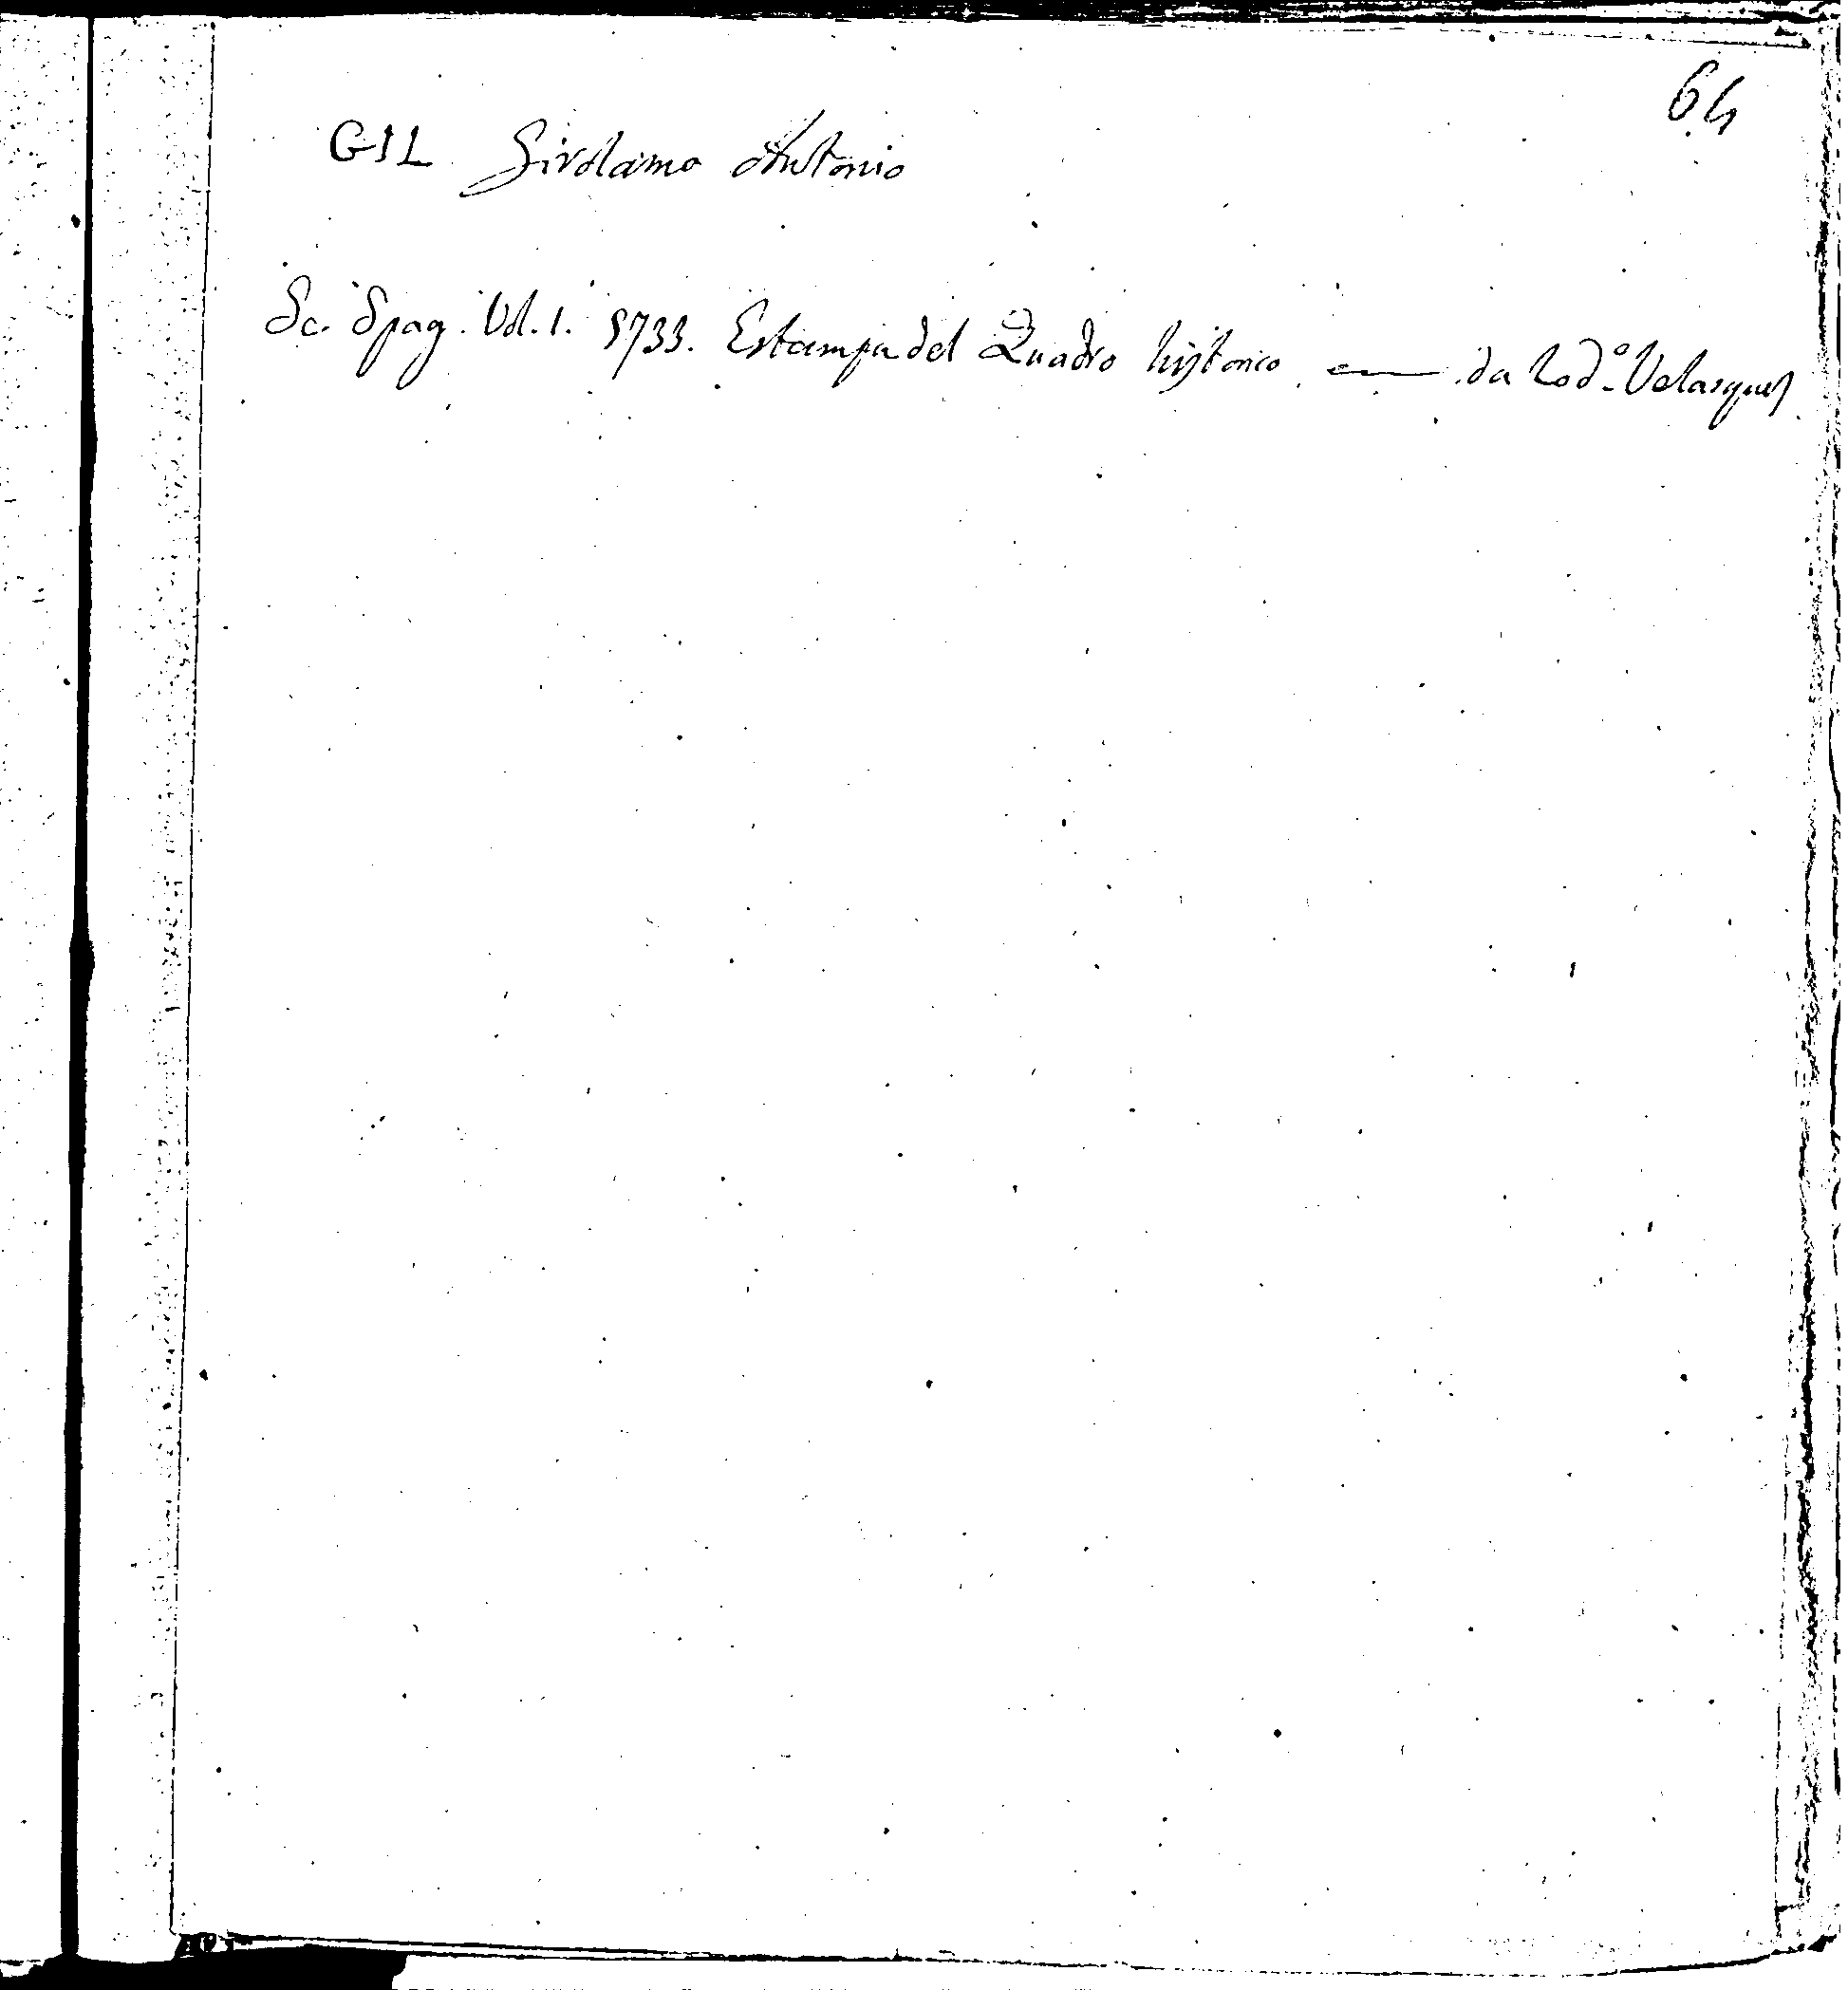 64
GIL Girolamo Antonio
Sc. Spag. Vol. 1. 5733. Estampa del Quadro historico — da Lod.º Velasquez